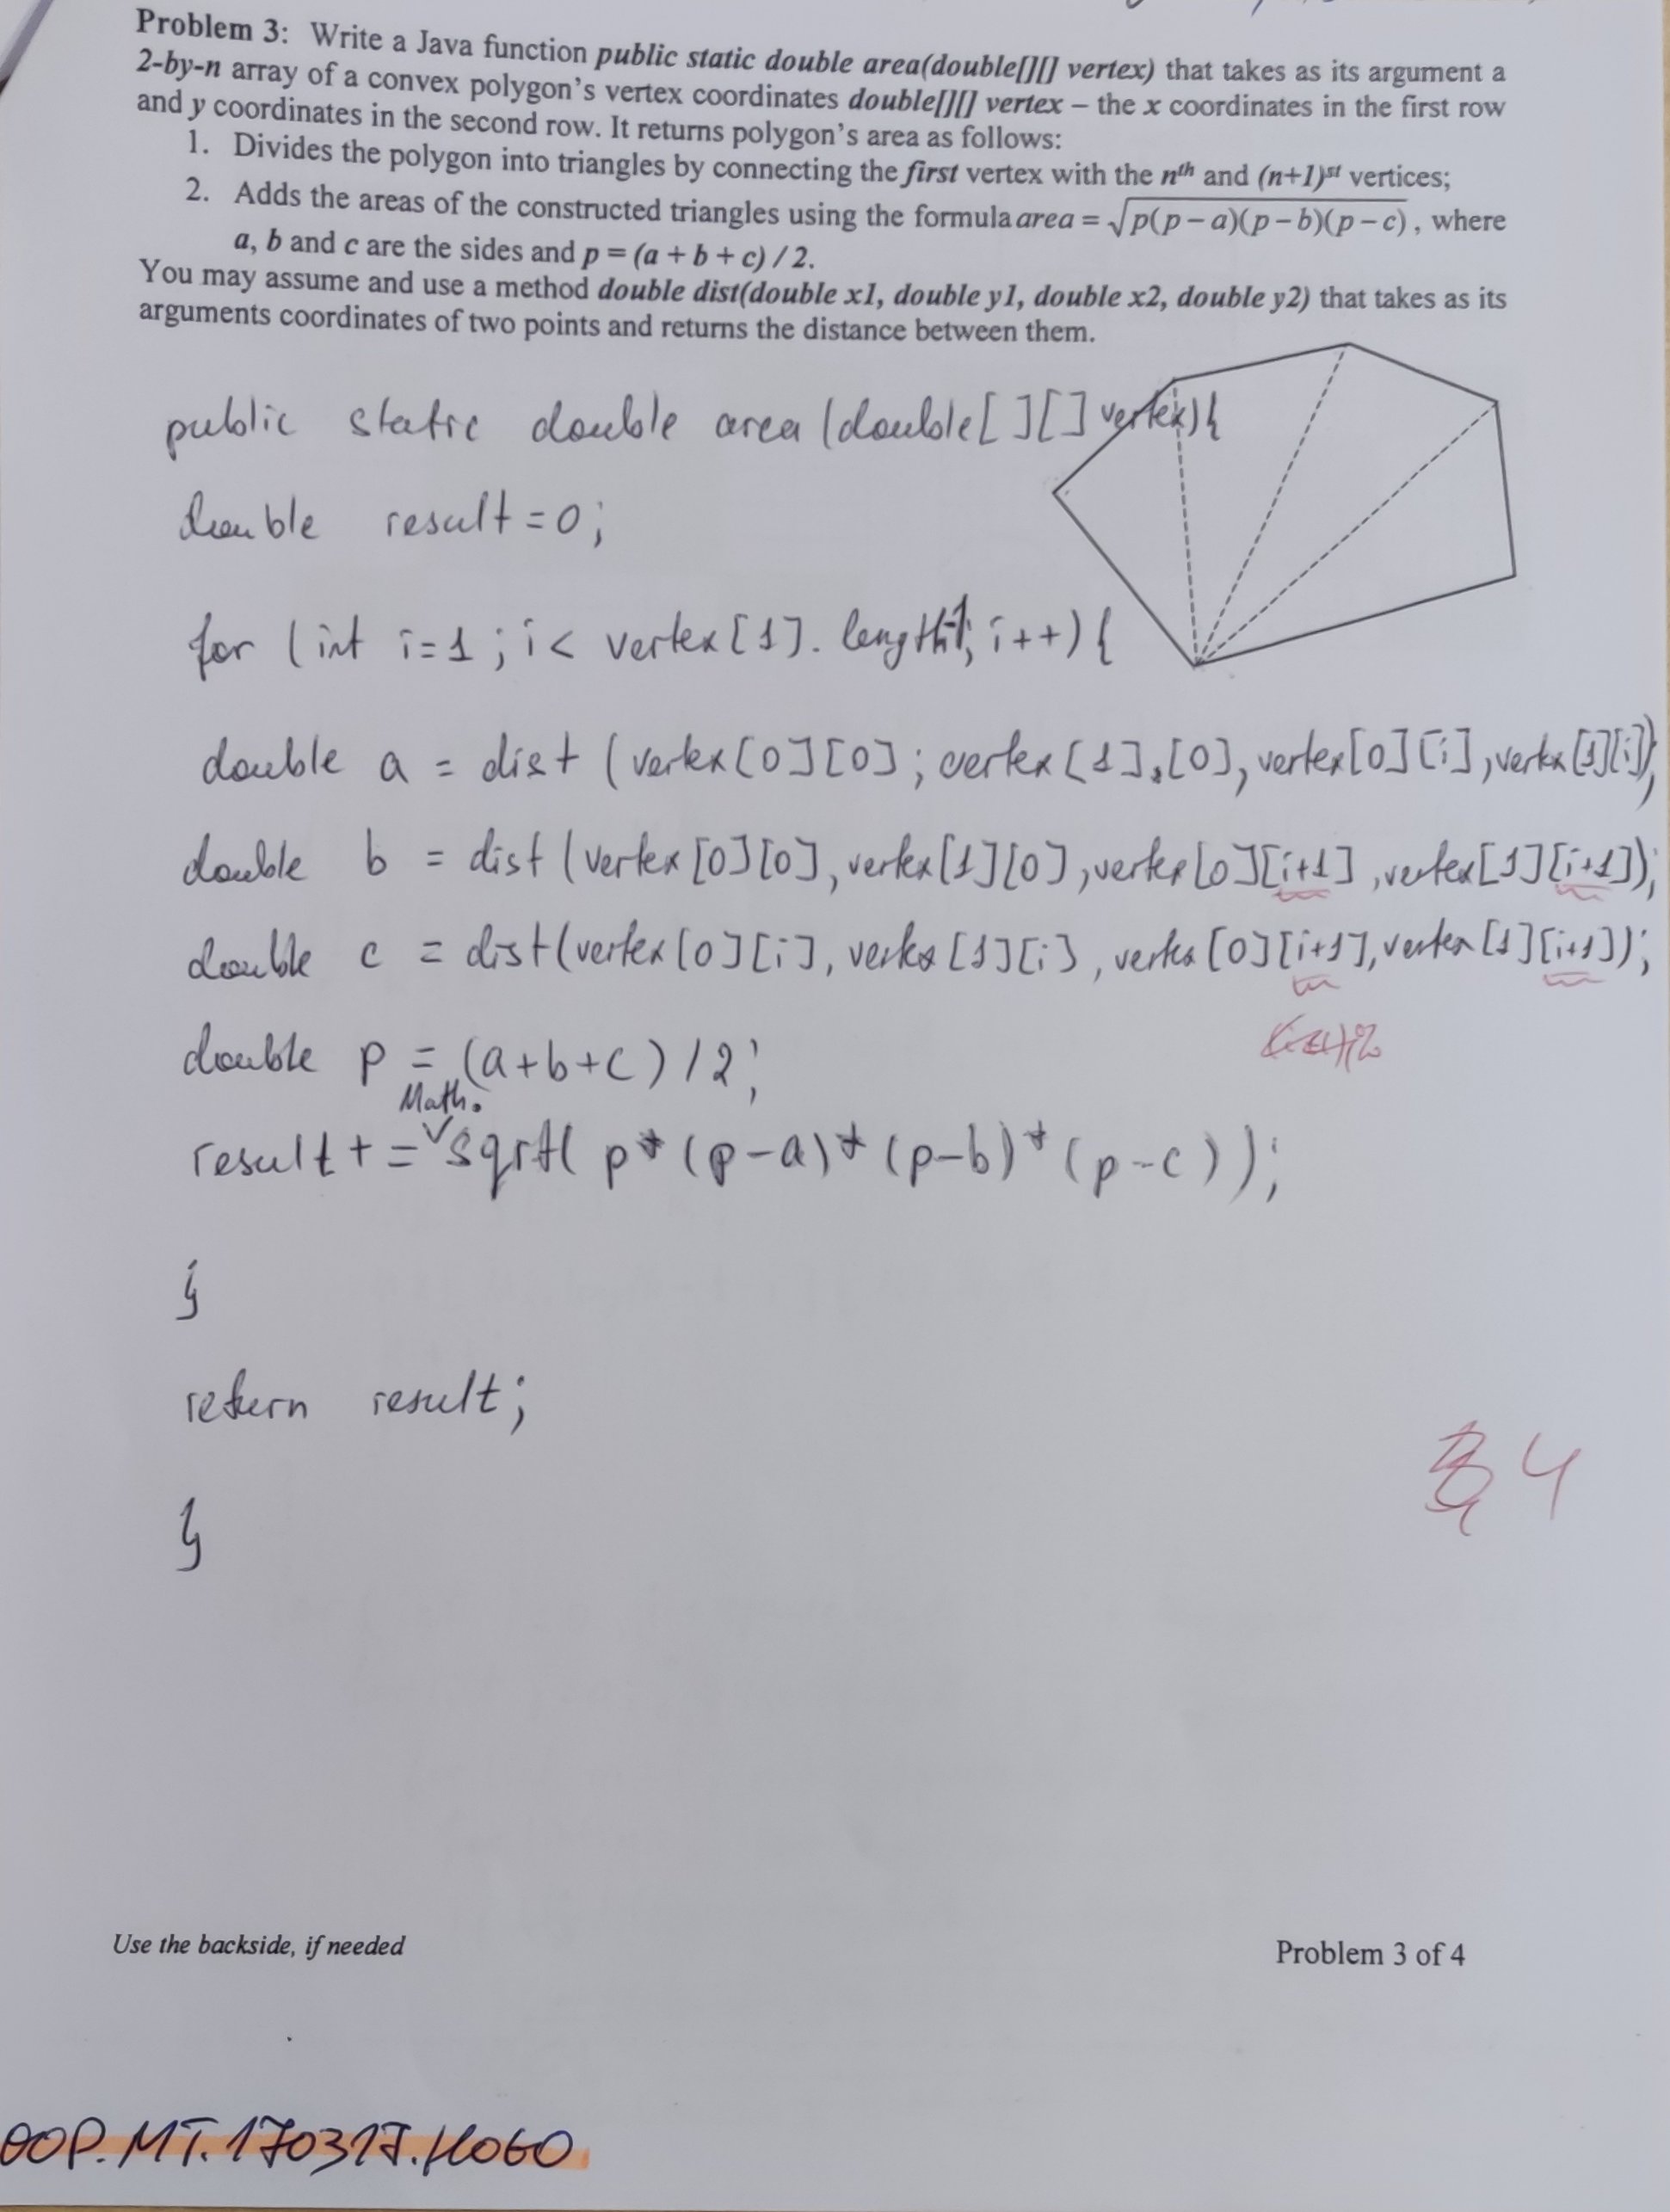 Problem 3: Write a Java function public static double area(double[][] vertex) that takes as its argument a
2-by-n array of a convex polygon's vertex coordinates double[][] vertex – the x coordinates in the first row
and y coordinates in the second row. It returns polygon's area as follows:
1. Divides the polygon into triangles by connecting the first vertex with the nth and (n+1)st vertices;
2. Adds the areas of the constructed triangles using the formula area = √p(p − a)(p − b)(p − c) , where
a, b and c are the sides and p = (a + b + c) / 2.
You may assume and use a method double dist(double x1, double y1, double x2, double y2) that takes as its
arguments coordinates of two points and returns the distance between them.
public static double area (double[][] vertex){
double result=0;
for (int i=1; i< vertex[1].length-1; i++){
double a = dist (vertex[0][0]; vertex[1],[0], vertex[0][i], vertex[1][i]);
double b = dist (vertex[0][0], vertex[1][0], vertex[0][i+1], vertex[1][i+1]);
double c = dist(vertex[0][i], vertex[1][i], vertex[0][i+1], vertex[1][i+1]);
double p = (a+b+c)/2;
Math.
result += sqrt( p*(p-a)*(p-b)*(p-c));
}
return result;
4
}
Use the backside, if needed
Problem 3 of 4
OOP.MT.170317.H060